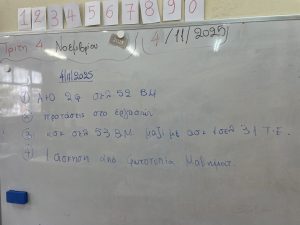 1 2 3 4 5 6 7 8 9 0
Τρίτη 4 Νοεμβρίου 4/11/2025
4/11/2025
① 2φ σελ 52 ΒΜ
② προτάσεις στο
③ σελ 53 ΒΜ μαζί με ασκ 1 σελ 31 Τ.Ε.
④ 1 Άσκηση από φωτοτυπία Μαθηματ.